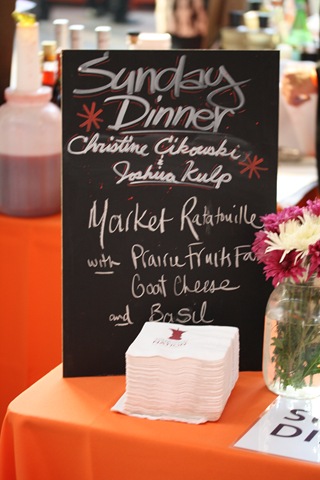 Sunday
Dinner
Christine Cikowski
&
Joshua Kulp
Market Ratatouille
with Prairie Fruits Fa
Goat Cheese
and Basil
S
DI